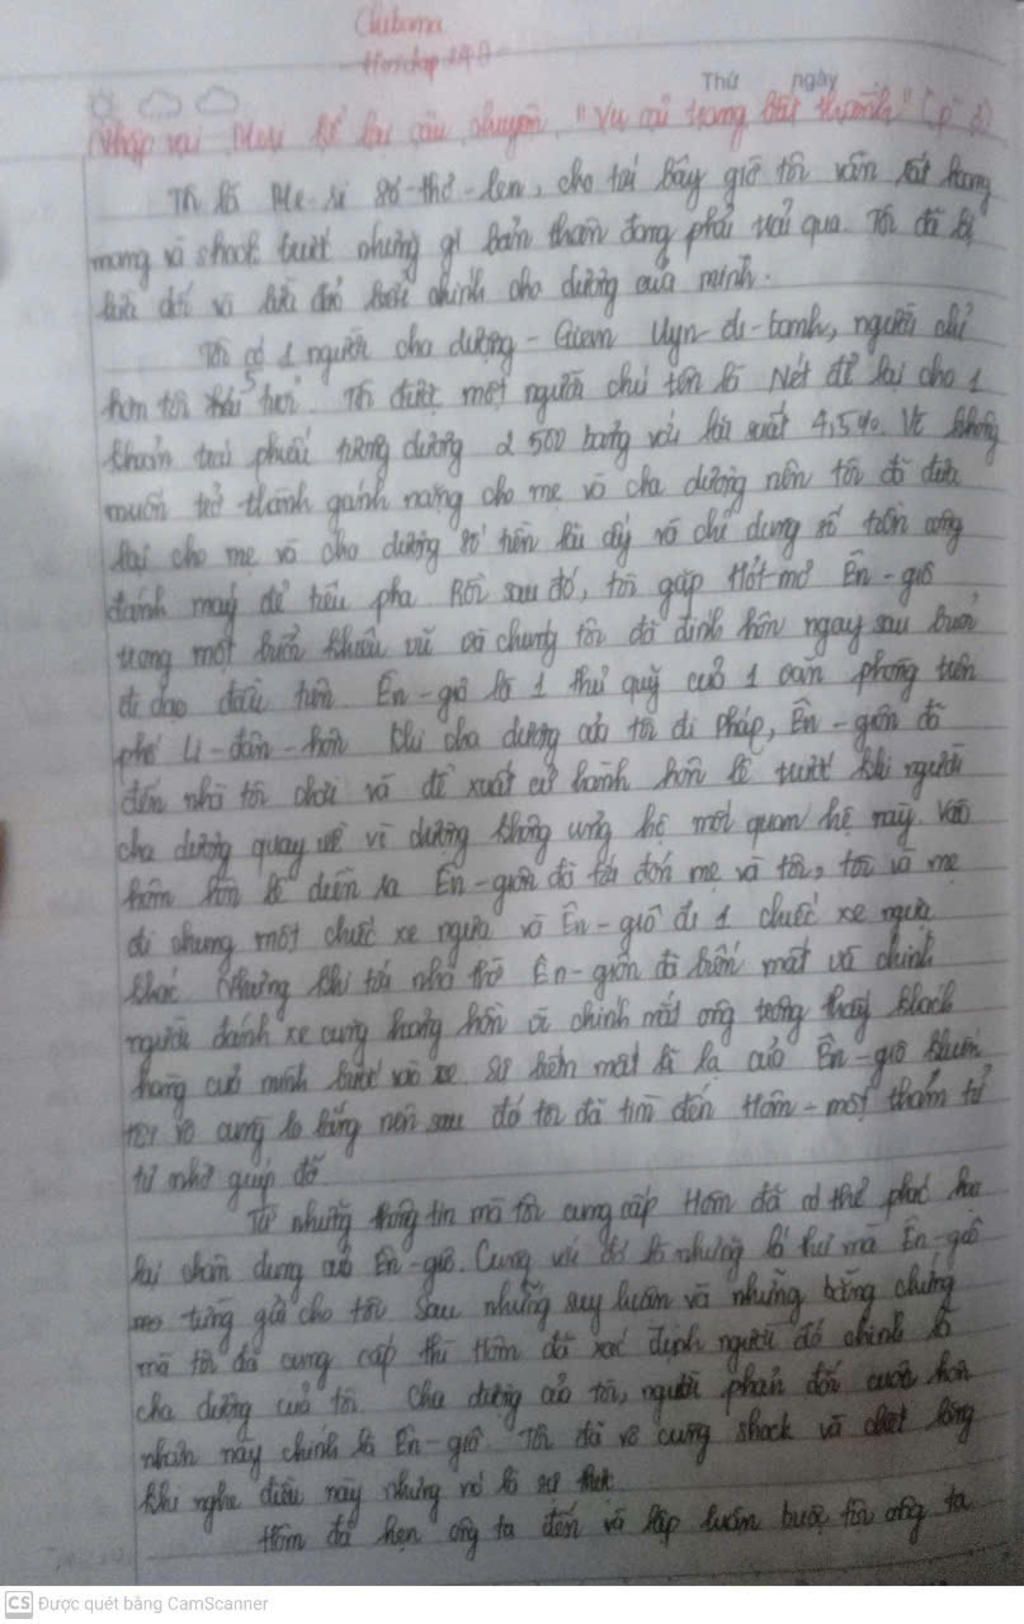 Thứ ngày
Nhập vai Meri kể lại câu chuyện "Vụ cải trang bất thành" (
Tôi là Me-ri Xơ-thơ-len, cho tới bây giờ tôi vẫn rất hoang
mang và shock trước những gì bản thân đang phải trải qua. Tôi đã bị
lừa dối và lừa đảo bởi chính cha dượng của mình.
Tôi có 1 người cha dượng - Uyn-di-banh, người chỉ
hơn tôi 5 tuổi. Tôi được một người chú tên là Nét để lại cho 1
khoản trái phiếu tương đương 2 500 bảng với lãi suất 4,5%. Vì không
muốn trở thành gánh nặng cho mẹ và cha dượng nên tôi đã đưa
lại cho mẹ và cha dượng số tiền lãi ấy và chỉ dùng số tiền công
đánh máy để tiêu pha. Rồi sau đó, tôi gặp Hót-mơ Ên-giô
trong một buổi khiêu vũ và chúng tôi đã đính hôn ngay sau buổi
đi dạo đầu tiên. Ên-giô là 1 thủ quỹ của 1 văn phòng trên
phố Li-đân-hôn. Khi cha dượng của tôi đi Pháp, Ên-giôn đã
đến nhà tôi chơi và đề xuất cử hành hôn lễ trước khi người
cha dượng quay về vì dượng không ủng hộ mối quan hệ này. Vào
hôm hôn lễ diễn ra Ên-giôn đã tới đón mẹ và tôi, tôi và mẹ
đi chung một chiếc xe ngựa và Ên-giô đi 1 chiếc xe ngựa
khác. Nhưng khi tới nhà thờ Ên-giôn đã biến mất và chính
người đánh xe cũng hoang hồn vì chính mắt ông trông thấy khách
hàng của mình bước vào xe. Sự biến mất kì lạ của Ên-giô khiến
tôi vô cùng lo lắng nên sau đó tôi đã tìm đến Hôm - một thám tử
tư nhờ giúp đỡ
Từ những thông tin mà tôi cung cấp Hôm đã có thể phác họa
lại chân dung của Ên-giô. Cùng với đó là những lá thư mà Ên-giô
từng gửi cho tôi. Sau những suy luận và những bằng chứng
mà tôi đã cung cấp thì Hôm đã xác định người đó chính là
cha dượng của tôi. Cha dượng của tôi, người phản đối cuộc hôn
nhân này chính là Ên-giô. Tôi đã vô cùng shock và chết lặng
khi nghe điều này nhưng nó là sự thật.
Hôm đã hẹn ông ta đến và lập luận buộc tội ông ta
CS Được quét bằng CamScanner